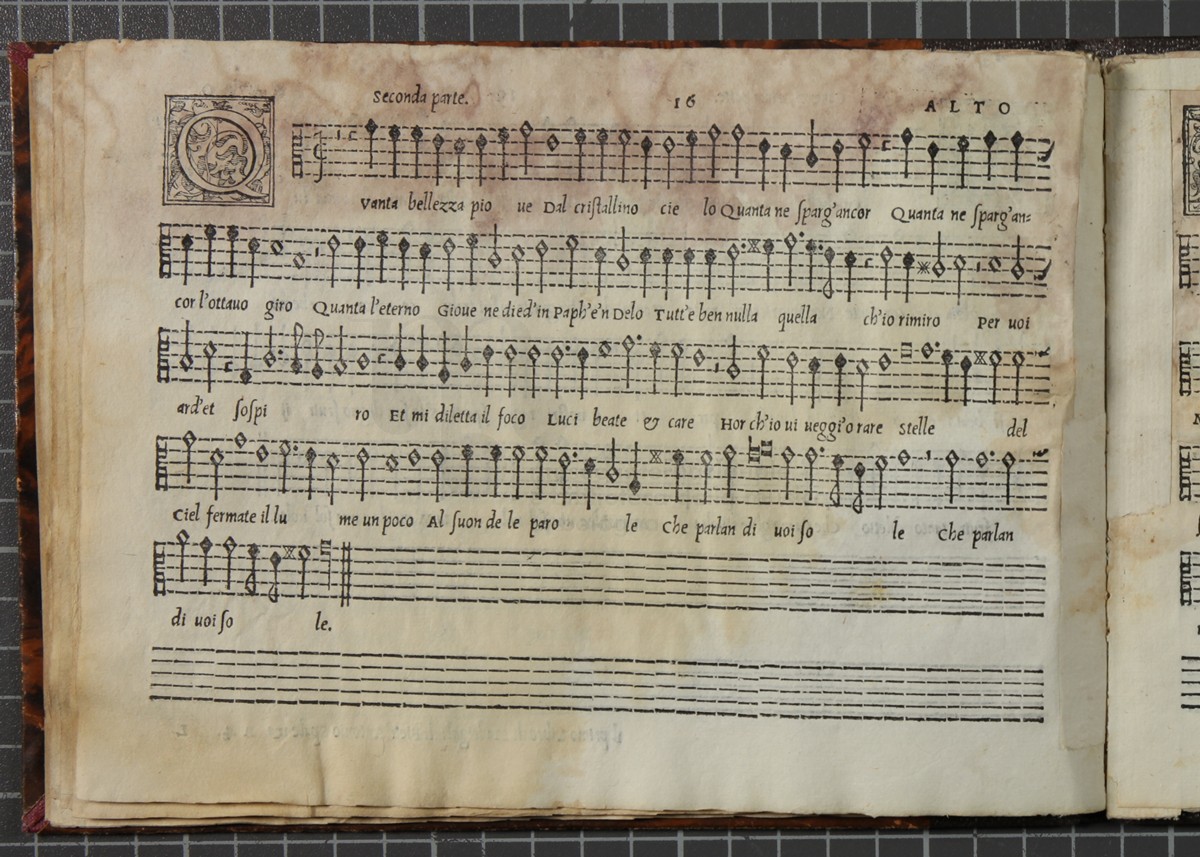 Seconda parte. 16 ALTO
Q
vanta bellezza pio ue Dal cristallino cie lo Quanta ne sparg'ancor Quanta ne sparg'an=
cor l'ottauo giro Quanta l'eterno Gioue ne died'in Paph'e'n Delo Tutt'e ben nulla quella ch'io rimiro Per uoi
ard'et sospi ro Et mi diletta il foco Luci beate & care Hor ch'io ui ueggi'o rare stelle del
Ciel fermate il lu me un poco Al suon de le paro le Che parlan di uoi so le Che parlan
di uoi so le.